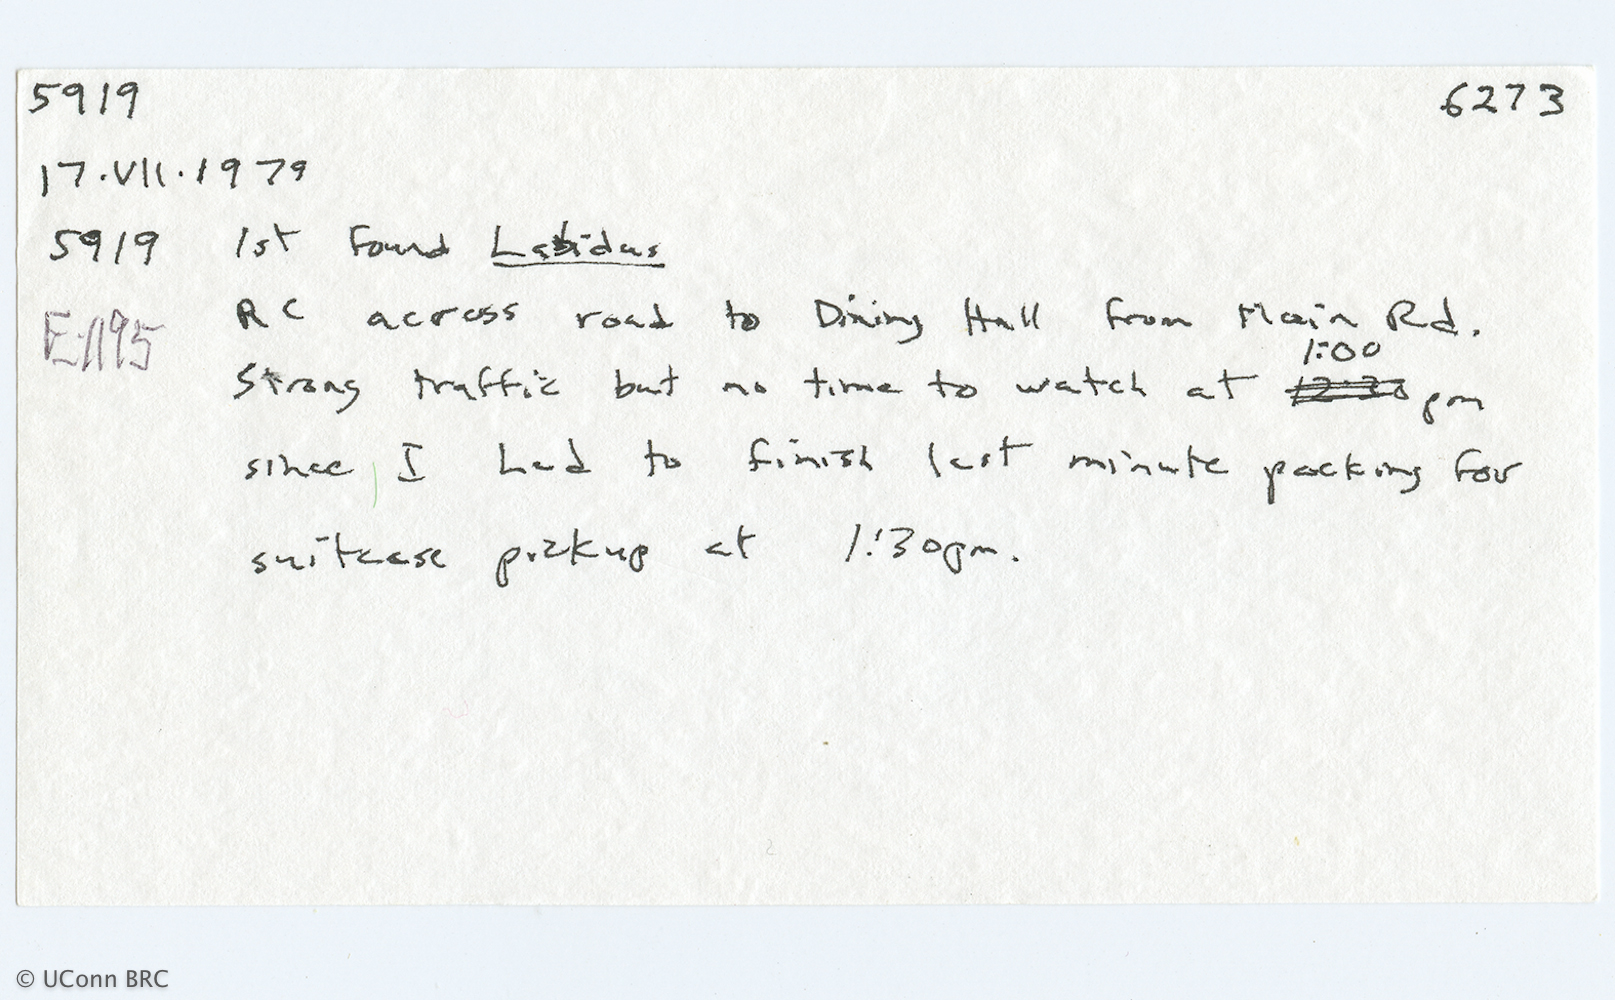 5919 6273
17.VII.1979
5919 1st Found Labidus
E-1195 RC across road to Dining Hall from Main Rd.
1:00
Strong traffic but no time to watch at 12:30 pm
since I had to finish last minute packing for
suitcase pickup at 1:30pm.
© UConn BRC